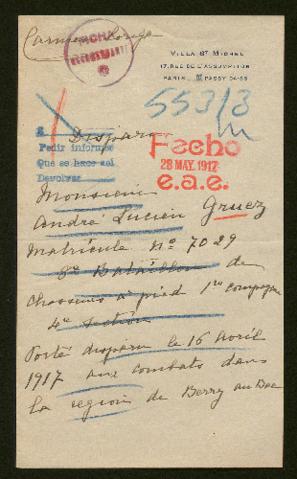 VILLA ST MICHEL
17, RUE DE L'ASSOMPTION
FICHA
PARIS. PASSY 04-53
553/3
Disparu
Pedir informes
Que se hace así
Devolver
Fecho
28 MAY. 1917
e.a.e.
Monsieur
André Lucien Gruez
Matricule No 7029
8me Bataillon de
Chasseurs à pied 1re compagnie
4e section
Porté disparu le 16 Avril
1917 aux combats dans
la region de Berry au Bac